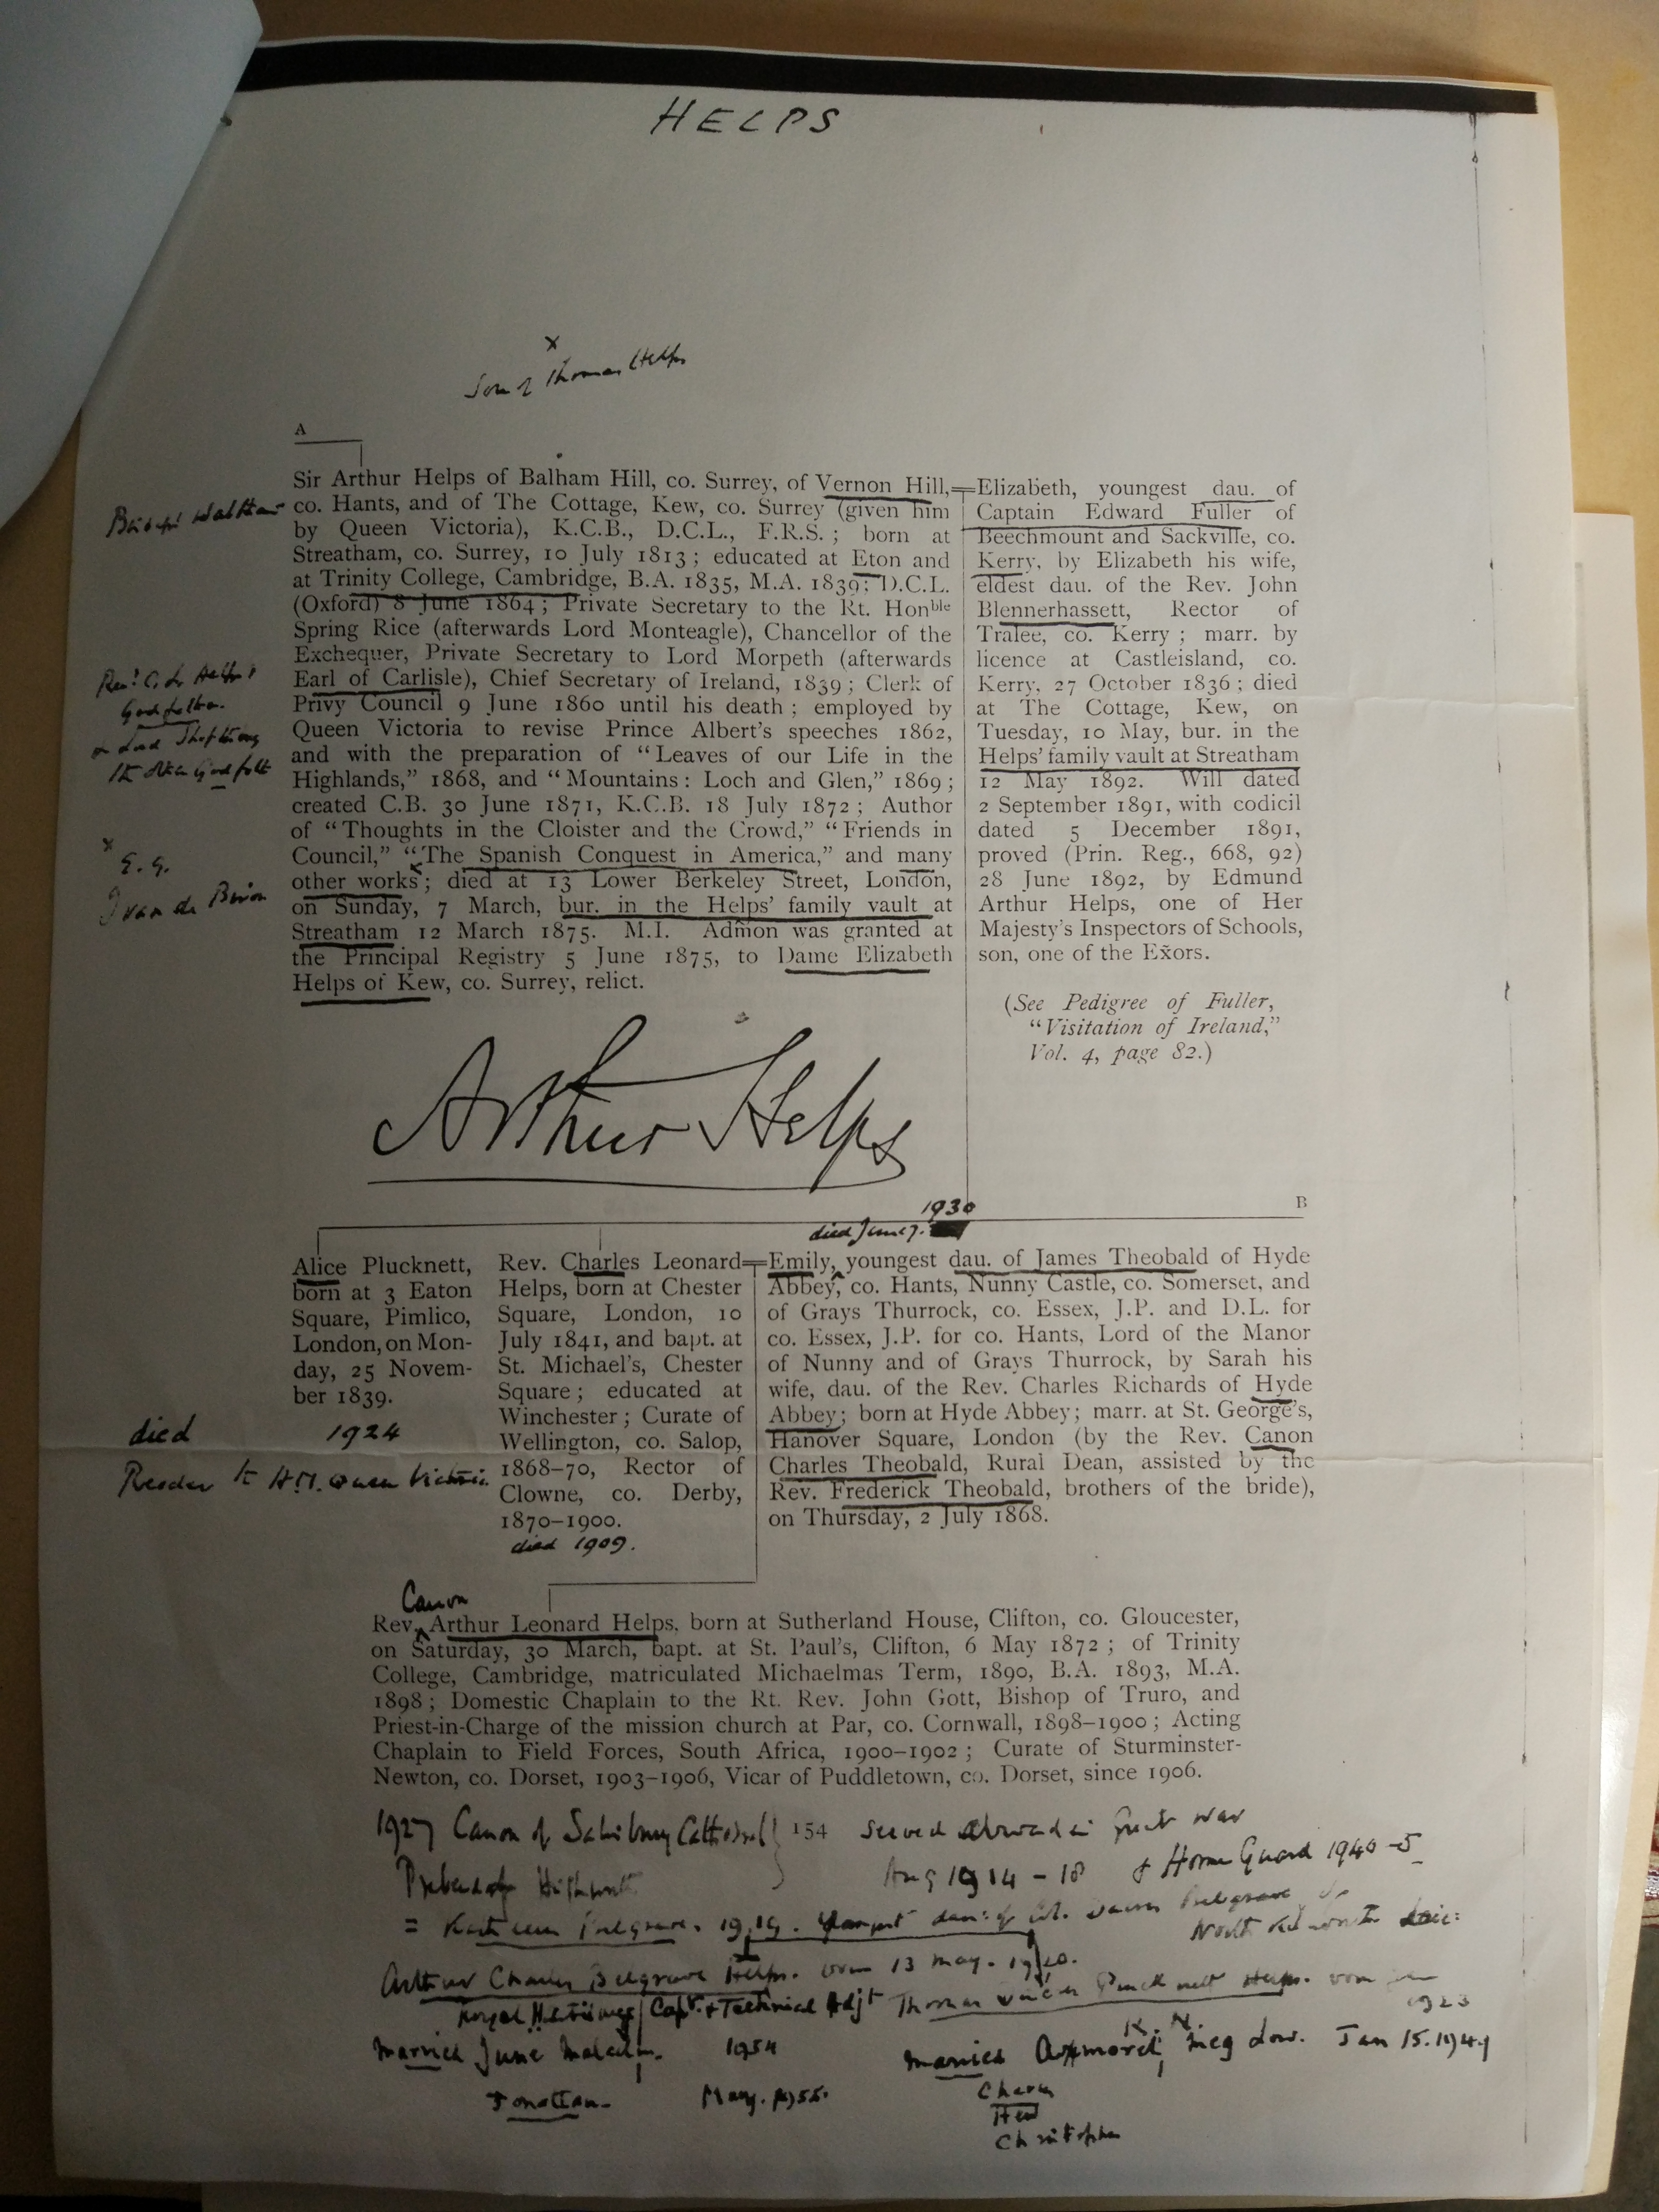 HELPS
x
Son of Thomas Helps
A
Sir Arthur Helps of Balham Hill, co. Surrey, of Vernon Hill,
co. Hants, and of The Cottage, Kew, co. Surrey (given him
by Queen Victoria), K.C.B., D.C.L., F.R.S.; born at
Streatham, co. Surrey, 10 July 1813; educated at Eton and
at Trinity College, Cambridge, B.A. 1835, M.A. 1839; D.C.L.
(Oxford) 8 June 1864; Private Secretary to the Rt. Honble
Spring Rice (afterwards Lord Monteagle), Chancellor of the
Exchequer, Private Secretary to Lord Morpeth (afterwards
Earl of Carlisle), Chief Secretary of Ireland, 1839; Clerk of
Privy Council 9 June 1860 until his death; employed by
Queen Victoria to revise Prince Albert's speeches 1862,
and with the preparation of "Leaves of our Life in the
Highlands," 1868, and "Mountains: Loch and Glen," 1869;
created C.B. 30 June 1871, K.C.B. 18 July 1872; Author
of "Thoughts in the Cloister and the Crowd," "Friends in
Council," "The Spanish Conquest in America," and many
other works; died at 13 Lower Berkeley Street, London,
on Sunday, 7 March, bur. in the Helps' family vault at
Streatham 12 March 1875. M.I. Adm̃on was granted at
the Principal Registry 5 June 1875, to Dame Elizabeth
Helps of Kew, co. Surrey, relict.
Elizabeth, youngest dau. of
Captain Edward Fuller of
Beechmount and Sackville, co.
Kerry, by Elizabeth his wife,
eldest dau. of the Rev. John
Blennerhassett, Rector of
Tralee, co. Kerry; marr. by
licence at Castleisland, co.
Kerry, 27 October 1836; died
at The Cottage, Kew, on
Tuesday, 10 May, bur. in the
Helps' family vault at Streatham
12 May 1892. Will dated
2 September 1891, with codicil
dated 5 December 1891,
proved (Prin. Reg., 668, 92)
28 June 1892, by Edmund
Arthur Helps, one of Her
Majesty's Inspectors of Schools,
son, one of the Ex̃ors.
(See Pedigree of Fuller,
"Visitation of Ireland,"
Vol. 4, page 82.)
Bishops Waltham
Revd C. L. Helps's
Godfather
x
E.g.
Ivan de Biron
Arthur Helps
B
1930
died June 7.
Alice Plucknett,
born at 3 Eaton
Square, Pimlico,
London, on Mon-
day, 25 Novem-
ber 1839.
died 1924
Reader to H.M. Queen Victoria.
Rev. Charles Leonard
Helps, born at Chester
Square, London, 10
July 1841, and bapt. at
St. Michael's, Chester
Square; educated at
Winchester; Curate of
Wellington, co. Salop,
1868–70, Rector of
Clowne, co. Derby,
1870–1900.
died 1909.
Emily, youngest dau. of James Theobald of Hyde
Abbey, co. Hants, Nunny Castle, co. Somerset, and
of Grays Thurrock, co. Essex, J.P. and D.L. for
co. Essex, J.P. for co. Hants, Lord of the Manor
of Nunny and of Grays Thurrock, by Sarah his
wife, dau. of the Rev. Charles Richards of Hyde
Abbey; born at Hyde Abbey; marr. at St. George's,
Hanover Square, London (by the Rev. Canon
Charles Theobald, Rural Dean, assisted by the
Rev. Frederick Theobald, brothers of the bride),
on Thursday, 2 July 1868.
Canon
Rev. Arthur Leonard Helps, born at Sutherland House, Clifton, co. Gloucester,
on Saturday, 30 March, bapt. at St. Paul's, Clifton, 6 May 1872; of Trinity
College, Cambridge, matriculated Michaelmas Term, 1890, B.A. 1893, M.A.
1898; Domestic Chaplain to the Rt. Rev. John Gott, Bishop of Truro, and
Priest-in-Charge of the mission church at Par, co. Cornwall, 1898–1900; Acting
Chaplain to Field Forces, South Africa, 1900–1902; Curate of Sturminster-
Newton, co. Dorset, 1903–1906, Vicar of Puddletown, co. Dorset, since 1906.
1927 Canon of Salisbury Cathedral
154
served abroad in Great War
Aug 1914 - 18 & Home Guard 1940-5
= Kathleen Belgrave. 1919. Youngest dau: of Col. Belgrave
North Kilworth Leic:
Arthur Charles Belgrave Helps. born 13 May. 1920.
Royal Hussars Capt. & Technical Adjt
Thomas Plucknett Helps. born 1923
Married June Malcolm. 1954
Jonathan. May. 1955.
Married Meg Jan 15. 1949
Christopher